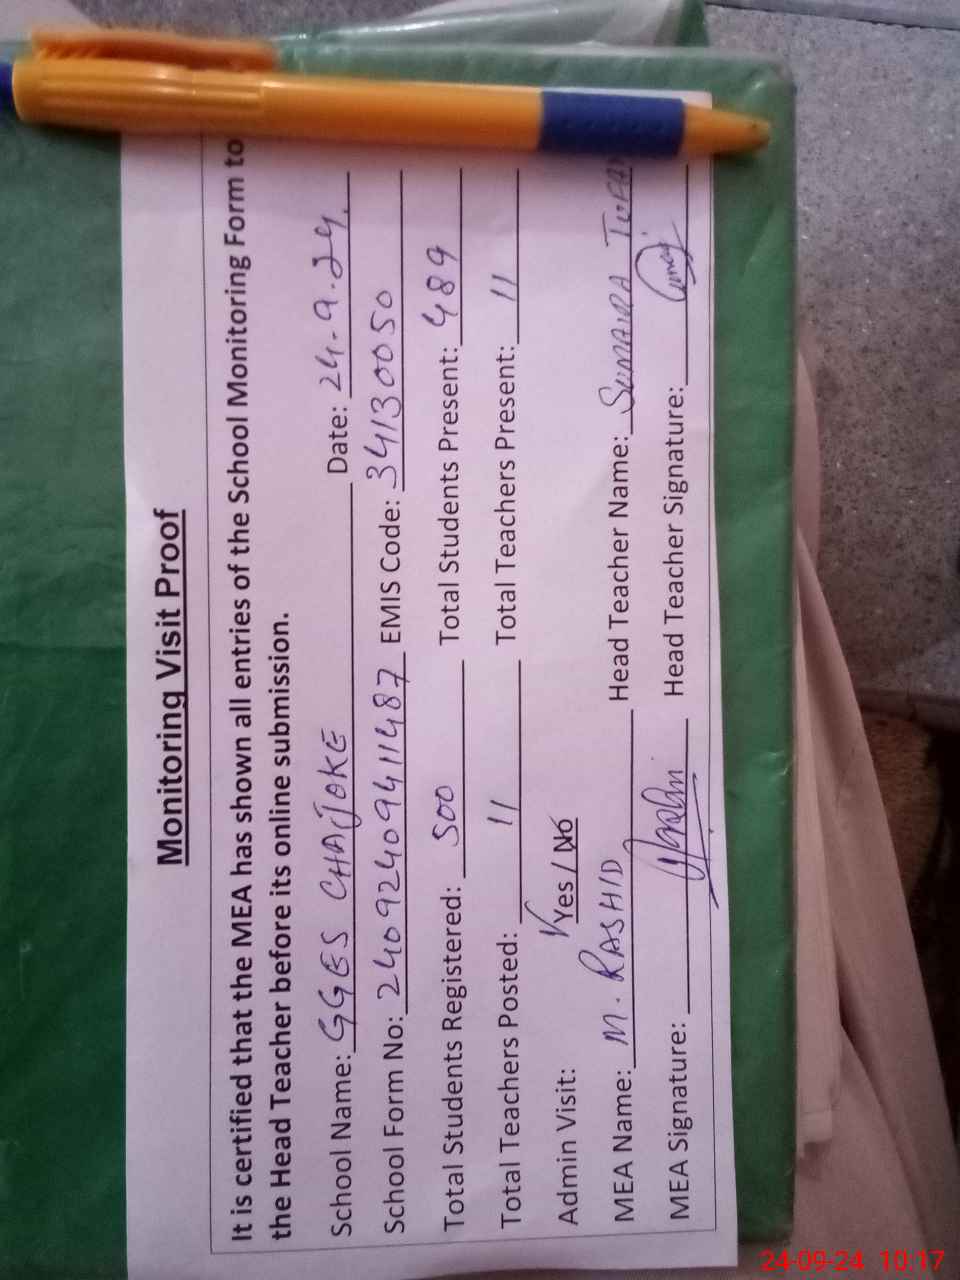 Monitoring Visit Proof
It is certified that the MEA has shown all entries of the School Monitoring Form to
the Head Teacher before its online submission.
School Name: GGES CHAIJOKE Date: 24-9-24.
School Form No: 240924094111487 EMIS Code: 34130050
Total Students Registered: 500 Total Students Present: 489
Total Teachers Posted: 11 Total Teachers Present: 11
Admin Visit: Yes / No
MEA Name: M. RASHID Head Teacher Name: SUMAIRA
MEA Signature: Head Teacher Signature:
24-09-24 10:17